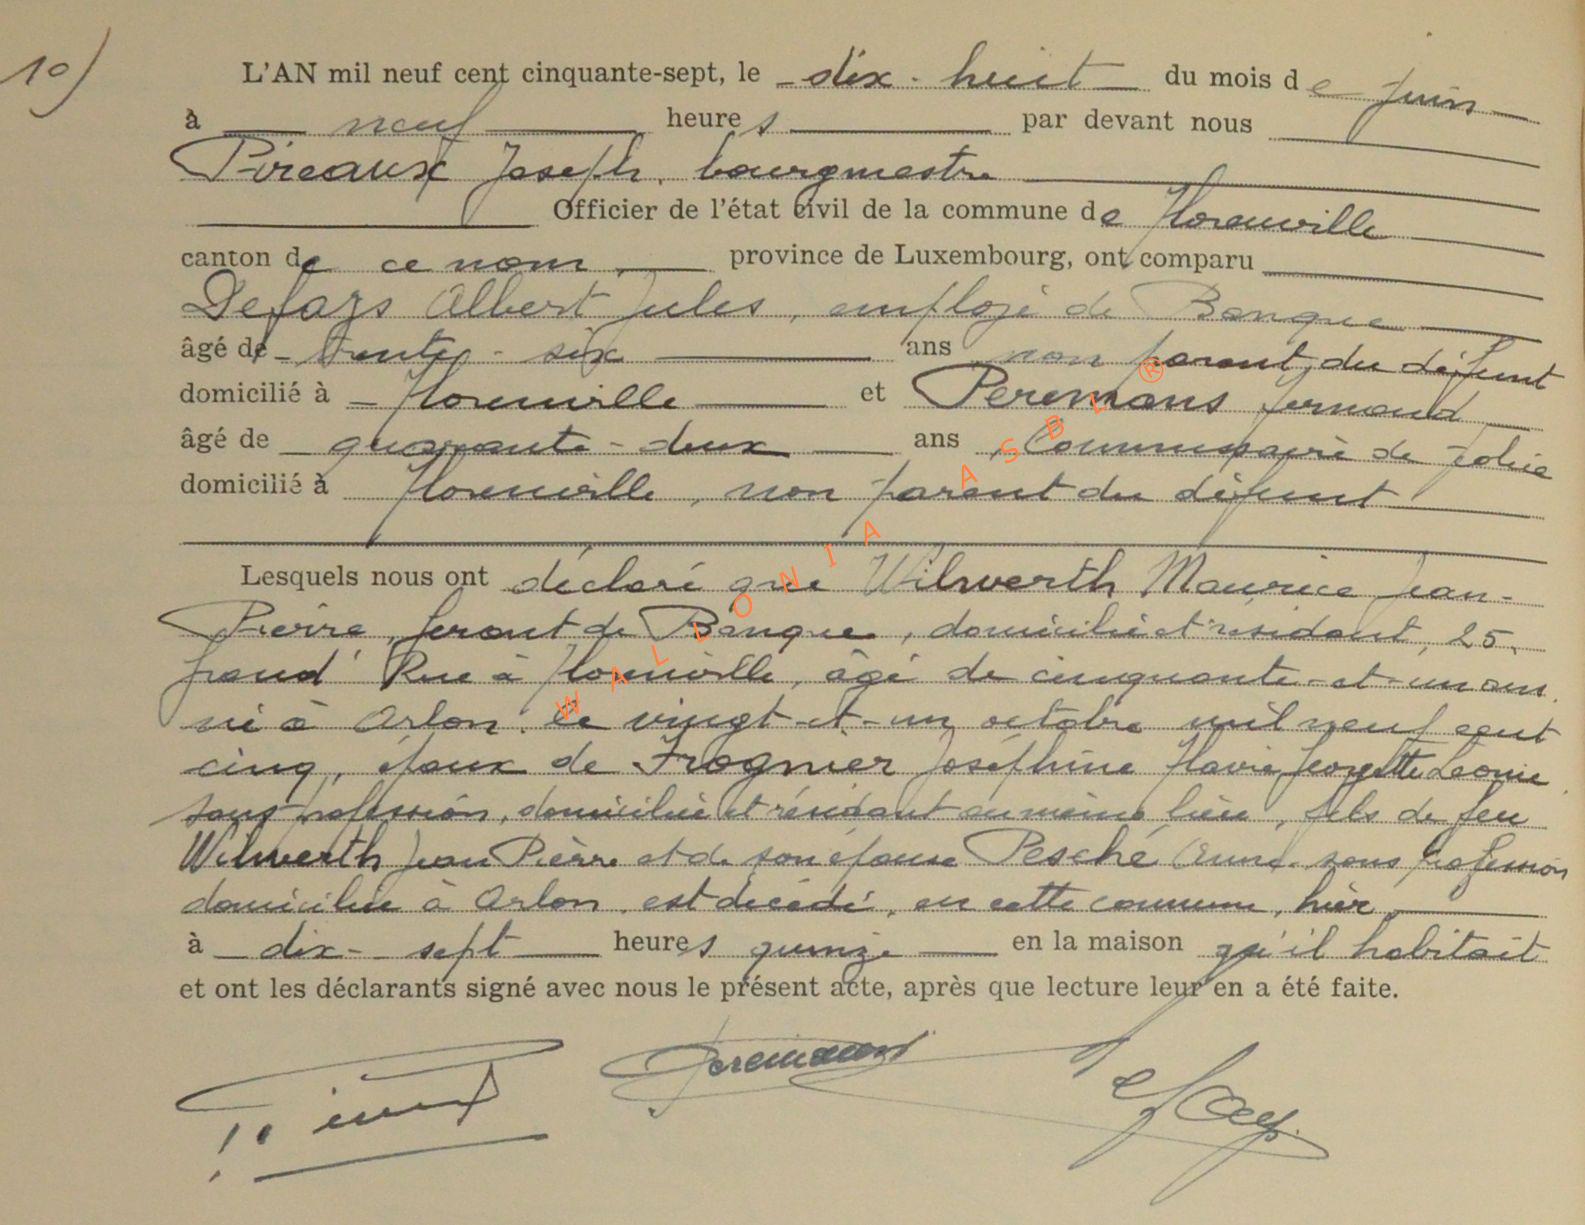 10)
L'AN mil neuf cent cinquante-sept, le dix-huit du mois de Juin
à neuf heures par devant nous
Pireaux Joseph, bourgmestre
Officier de l'état civil de la commune de Florenville
canton de ce nom, province de Luxembourg, ont comparu
Defays Albert Jules, employé de Banque
âgé de trente-six ans non parent du défunt
domicilié à Florenville et Peremans Fernand
âgé de quarante-deux ans, Commissaire de police
domicilié à Florenville, non parent du défunt
Lesquels nous ont déclaré que Wilwerth Maurice Jean-
Pierre, gérant de Banque, domicilié et résidant, 25,
grand' Rue à Florenville, âgé de cinquante-et-un ans
né à Arlon le vingt-et-un octobre mil neuf cent
cinq, époux de Frognier Joséphine Flavie Georgette Léonie
sans profession, domiciliée et résidant au même lieu, fils de feu
Wilwerth Jean Pierre et de son épouse Pesché Anne sans profession
domiciliée à Arlon, est décédé, en cette commune, hier,
à dix-sept heures quinze en la maison qu'il habitait
et ont les déclarants signé avec nous le présent acte, après que lecture leur en a été faite.
Peremans
WALLONIA ASBL ®